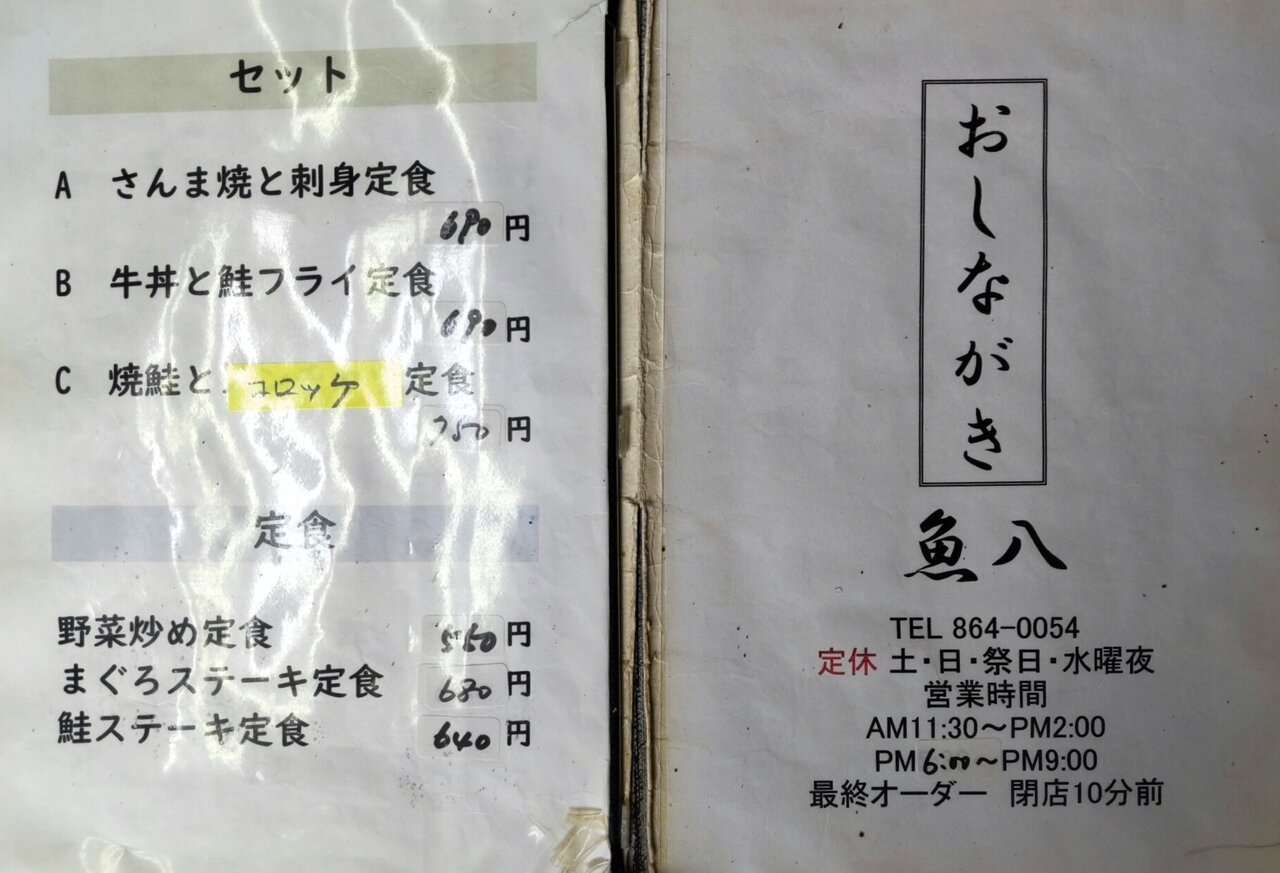 セット
A さんま焼と刺身定食
690円
B 牛丼と鮭フライ定食
690円
C 焼鮭と コロッケ 定食
750円
定食
野菜炒め定食 円
まぐろステーキ定食 680円
鮭ステーキ定食 640円
おしながき
魚八
TEL 864-0054
定休 土・日・祭日・水曜夜
営業時間
AM11:30～PM2:00
PM6:00～PM9:00
最終オーダー 閉店10分前